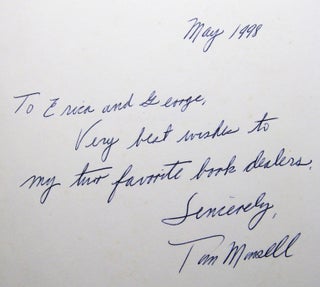 May 1998
To Erica and George,
Very best wishes to
my two favorite book dealers.
Sincerely,
Tom Mansell